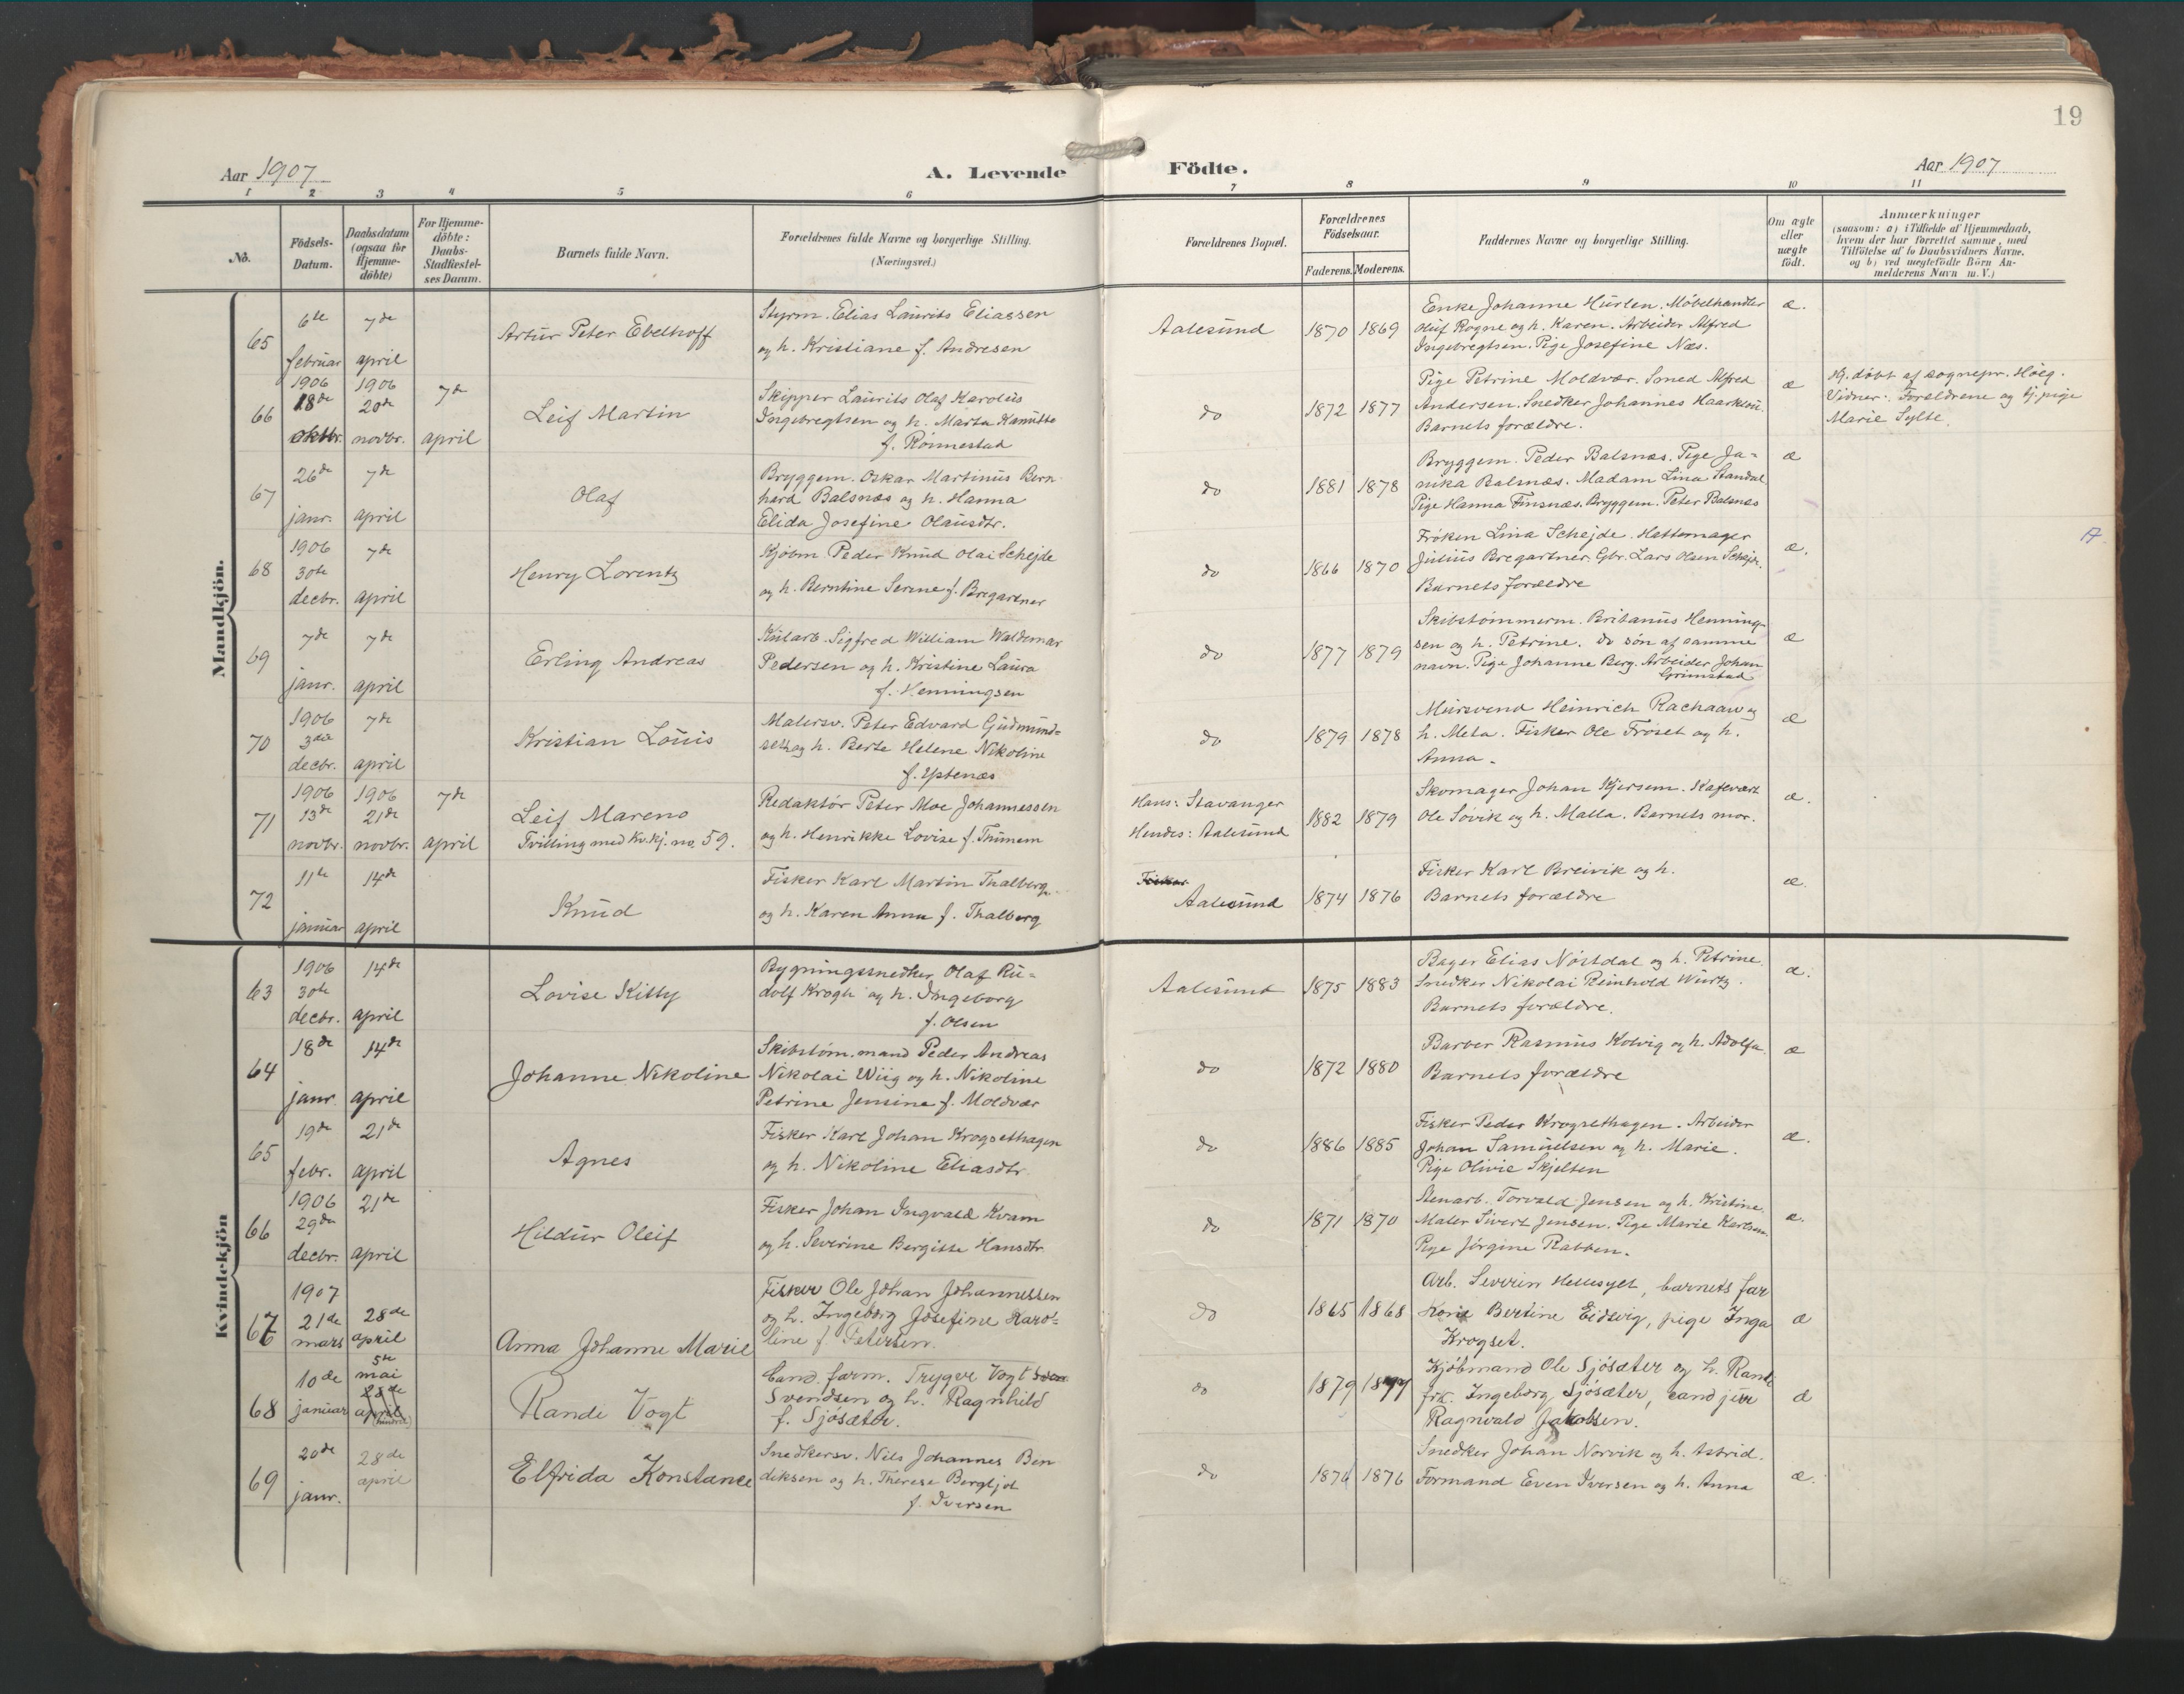 19
Aar 1907
A. Levende
Födte.
Aar 1907
1 2 3 4 5 6 7 8 9 10 11
No.
Födsels-
Datum.
Daabsdatum
(ogsaa for
Hjemme-
döbte)
For Hjemme-
döbte:
Daabs-
Stadfæstel-
ses Datum.
Barnets fulde Navn.
Forældrenes fulde Navne og borgerlige Stilling.
(Næringsvei.)
Forældrenes Bopæl.
Forældrenes
Födselsaar.
Faderens. Moderens.
Faddernes Navne og borgerlige Stilling.
Om ægte
eller
uægte
födt.
Anmærkninger
(saasom: a) i Tilfælde af Hjemmedaab,
hvem der har forrettet samme, med
Tilföielse af to Daabsvidners Navne,
og b) ved uægtefödte Börn An-
melderens Navn m. V.)
Mandkjön.
65
6te
februar
7de
april
Artur Peter Ebelhoff
Styrm. Elias Laurits Eliassen
og h. Kristiane f. Andresen
Aalesund
1870 1869
Enke Johanne Hurlen. Møbelhandler
Oluf Rogne og h. Karen. Arbeider Alfred
Ingebregtsen. Pige Josefine Næs.
æ.
66
1906
18de
oktbr.
1906
20de
novbr.
7de
april
Leif Martin
Skipper Laurits Olaf Karolus
Ingebregtsen og h. Marta Kanutte
f. Rønnestad
do
1872 1877
Pige Petrine Moldvær. Smed Alfred
Andersen. Snedker Johannes
Barnets forældre.
æ
Hj. døbt af sognepr. Høeg.
Vidner: Forældrene og tj. pige
Marie Sylte.
67
26de
janr.
7de
april
Olaf
Bryggem. Oskar Martinus Bern-
hard Balsnæs og h. Hanna
Elida Josefine Olausdtr.
do
1881 1878
Bryggem. Peder Balsnæs. Pige Ja-
nika Balsnæs. Madam Lina Standal
Pige Hanna Finsnæs. Bryggem. Peter Balsnæs
æ
68
1906
30te
decbr.
7de
april
Henry Lorentz
Kjøbm. Peder Knud Olai Schejde
og h. Berntine Serine f. Bregartner
do
1866 1870
Frøken Lina Schejde. Hattemager
Julius Bregartner. Gbr. Lars Olsen Schejde.
Barnets forældre
æ.
69
7de
janr.
7de
april
Erling Andreas
Kularb. Sigfred William Waldemar
Pedersen og h. Kristine Laura
f. Henningsen
do
1877 1879
Skibstømmerm. Britanus Henning-
sen og h. Petrine. do søn af samme
navn. Pige Johanne Berg. Arbeider Johan
Grimstad
æ
70
1906
3die
decbr.
7de
april
Kristian Louis
Malersv. Peter Edvard Gudmund-
seth og h. Berte Helene Nikoline
f. Ystenæs
do
1879 1878
Mursvend Heinrich Rachaau og
h. Meta. Fisker Ole Frøset og h.
Anna.
æ
71
1906
13de
novbr.
1906
21de
novbr.
7de
april
Leif Mareno
Tvilling med kv.kj. no. 59.
Redaktør Peter Moe Johannessen
og h. Henrikke Lovise f. Thunem
Hans: Stavanger
Hendes: Aalesund
1882 1879
Skomager Johan Kjersem. Kafevært
Ole Søvik og h. Malla. Barnets mor.
æ.
72
11te
januar
14de
april
Knud
Fisker Karl Martin Thalberg
og h. Karen Anna f. Thalberg
Fisker
Aalesund
1874 1876
Fisker Karl Breivik og h.
Barnets forældre
æ.
Kvindekjön
63
1906
30te
decbr.
14de
april
Lovise Kitty
Bygningssnedker Olaf Ru-
dolf Krogh og h. Ingeborg
f. Olsen
Aalesund
1875 1883
Bager Elias Nørstdal og h. Petrine.
Snedker Nikolai Reinhold Wurtz.
Barnets forældre.
æ.
64
18de
janr
14de
april
Johanne Nikoline
Skibstøm.mand Peder Andreas
Nikolai Wiig og h. Nikoline
Petrine Jensine f. Moldvær
do
1872 1880
Barber Rasmus Kolvig og h. Adolfa.
Barnets forældre
æ
65
19de
febr.
21de
april
Agnes
Fisker Karl Johan Krogsethagen
og h. Nikoline Eliasdtr.
do
1886 1885
Fisker Peder Krogsethagen. Arbeider
Johan Samuelsen og h. Marie.
Pige Olivie Skjelten
æ.
66
1906
29de
decbr.
21de
april
Hildur Oleif
Fisker Johan Ingvald Kvam
og h. Severine Bergitte Hansdtr.
do
1871 1870
Stenarb. Torvald Jensen og h. Kristine.
Maler Sivert Jensen. Pige Marie Karlsen.
Pige Jørgine Rabben.
æ.
67
1907
21de
mars
28de
april
Anna Johanne Marie
Fisker Ole Johan Johannessen
og h. Ingeborg Josefine Karo-
line f. Petersen.
do
1865 1868
Arb. Severin Hellesylt, barnets far
Kone Bertine Eidsvig, pige Inga
Krogset.
æ
68
10de
januar
5te
mai
28de
april
Randi Vogt
Cand. farm. Trygve Vogt
Svendsen og h. Ragnhild
f. Sjøsæter.
do
1879 1877
Kjøbmand Ole Sjøsæter og h. Randi
frk. Ingeborg Sjøsæter, cand jur
Ragnvald Jakobsen.
æ
69
20de
janr.
28de
april
Elfrida Konstance
Snedkersv. Nils Johannes Ben
diksen og h. Therese Bergljot
f. Iversen
do
1874 1876
Snedker Johan Norvik og h. Astrid.
Formand Even Iversen og h. Anna
æ.